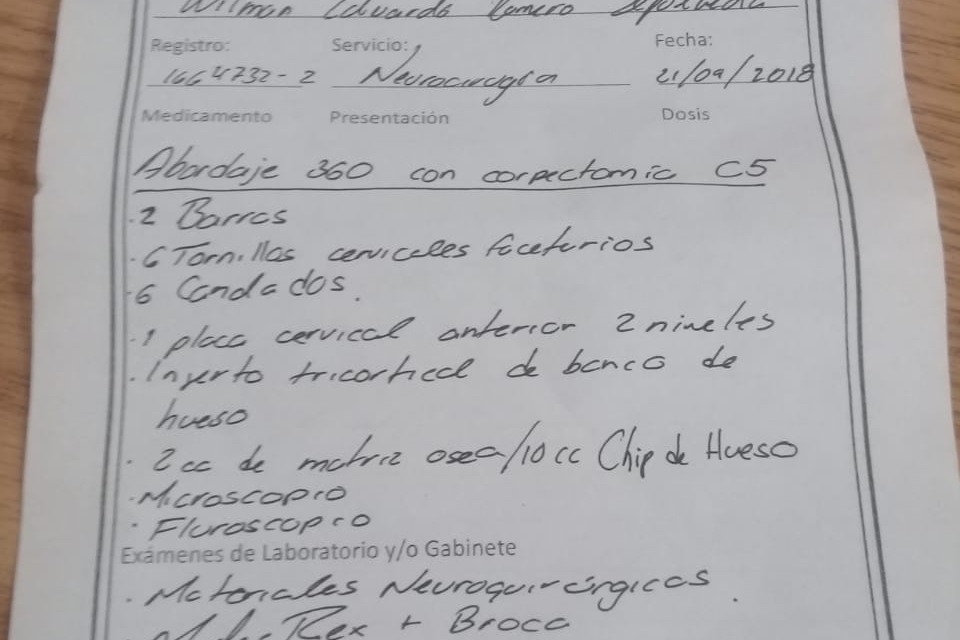 Wilman Eduardo Romero
Registro: Servicio: Fecha:
1664732-2 Neurocirugía 21/09/2018
Medicamento Presentación Dosis
Abordaje 360 con corpectomia C5
. 2 Barras
. 6 Tornillos cervicales facetarios
. 6 Candados.
. 1 placa cervical anterior 2 niveles
. Injerto tricortical de banco de
hueso
. 2 cc de matriz osea/10 cc Chip de Hueso
. Microscopio
. Fluroscopio
Exámenes de Laboratorio y/o Gabinete
. Materiales Neuroquirúrgicos.
Rex + Broca